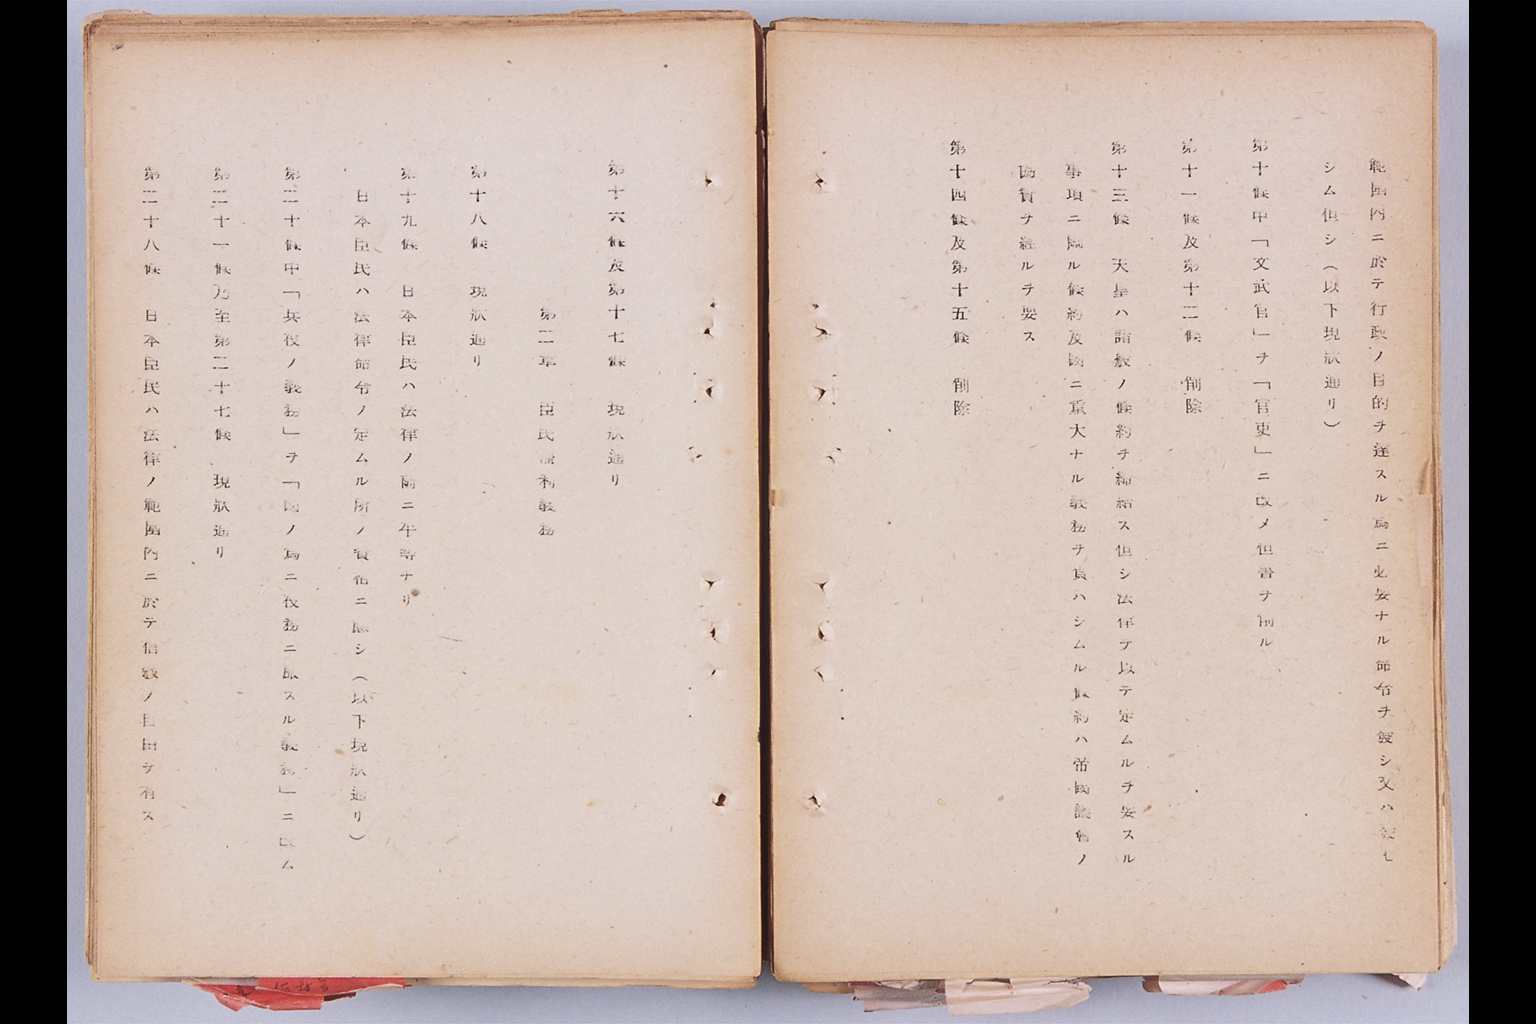 範圍內ニ於テ行政ノ目的ヲ達スル爲ニ必要ナル命令ヲ發シ又ハ發セ
シム但シ(以下現狀通リ)
第十條中「文武官」ヲ「官吏」ニ改メ但書ヲ削ル
第十一條及第十二條 削除
第十三條 天皇ハ諸般ノ條約ヲ締結ス但シ法律ヲ以テ定ムルヲ要スル
事項ニ關ル條約及國ニ重大ナル義務ヲ負ハシムル條約ハ帝國議會ノ
協贊ヲ經ルヲ要ス
第十四條及第十五條 削除
第十六條及第十七條 現狀通リ
第二章 臣民權利義務
第十八條 現狀通リ
第十九條 日本臣民ハ法律ノ前ニ平等ナリ
日本臣民ハ法律命令ノ定ムル所ノ資格ニ應シ(以下現狀通リ)
第二十條中「兵役ノ義務」ヲ「國ノ爲ニ役務ニ服スル義務」ニ改ム
第二十一條乃至第二十七條 現狀通リ
第二十八條 日本臣民ハ法律ノ範圍內ニ於テ信敎ノ自由ヲ有ス